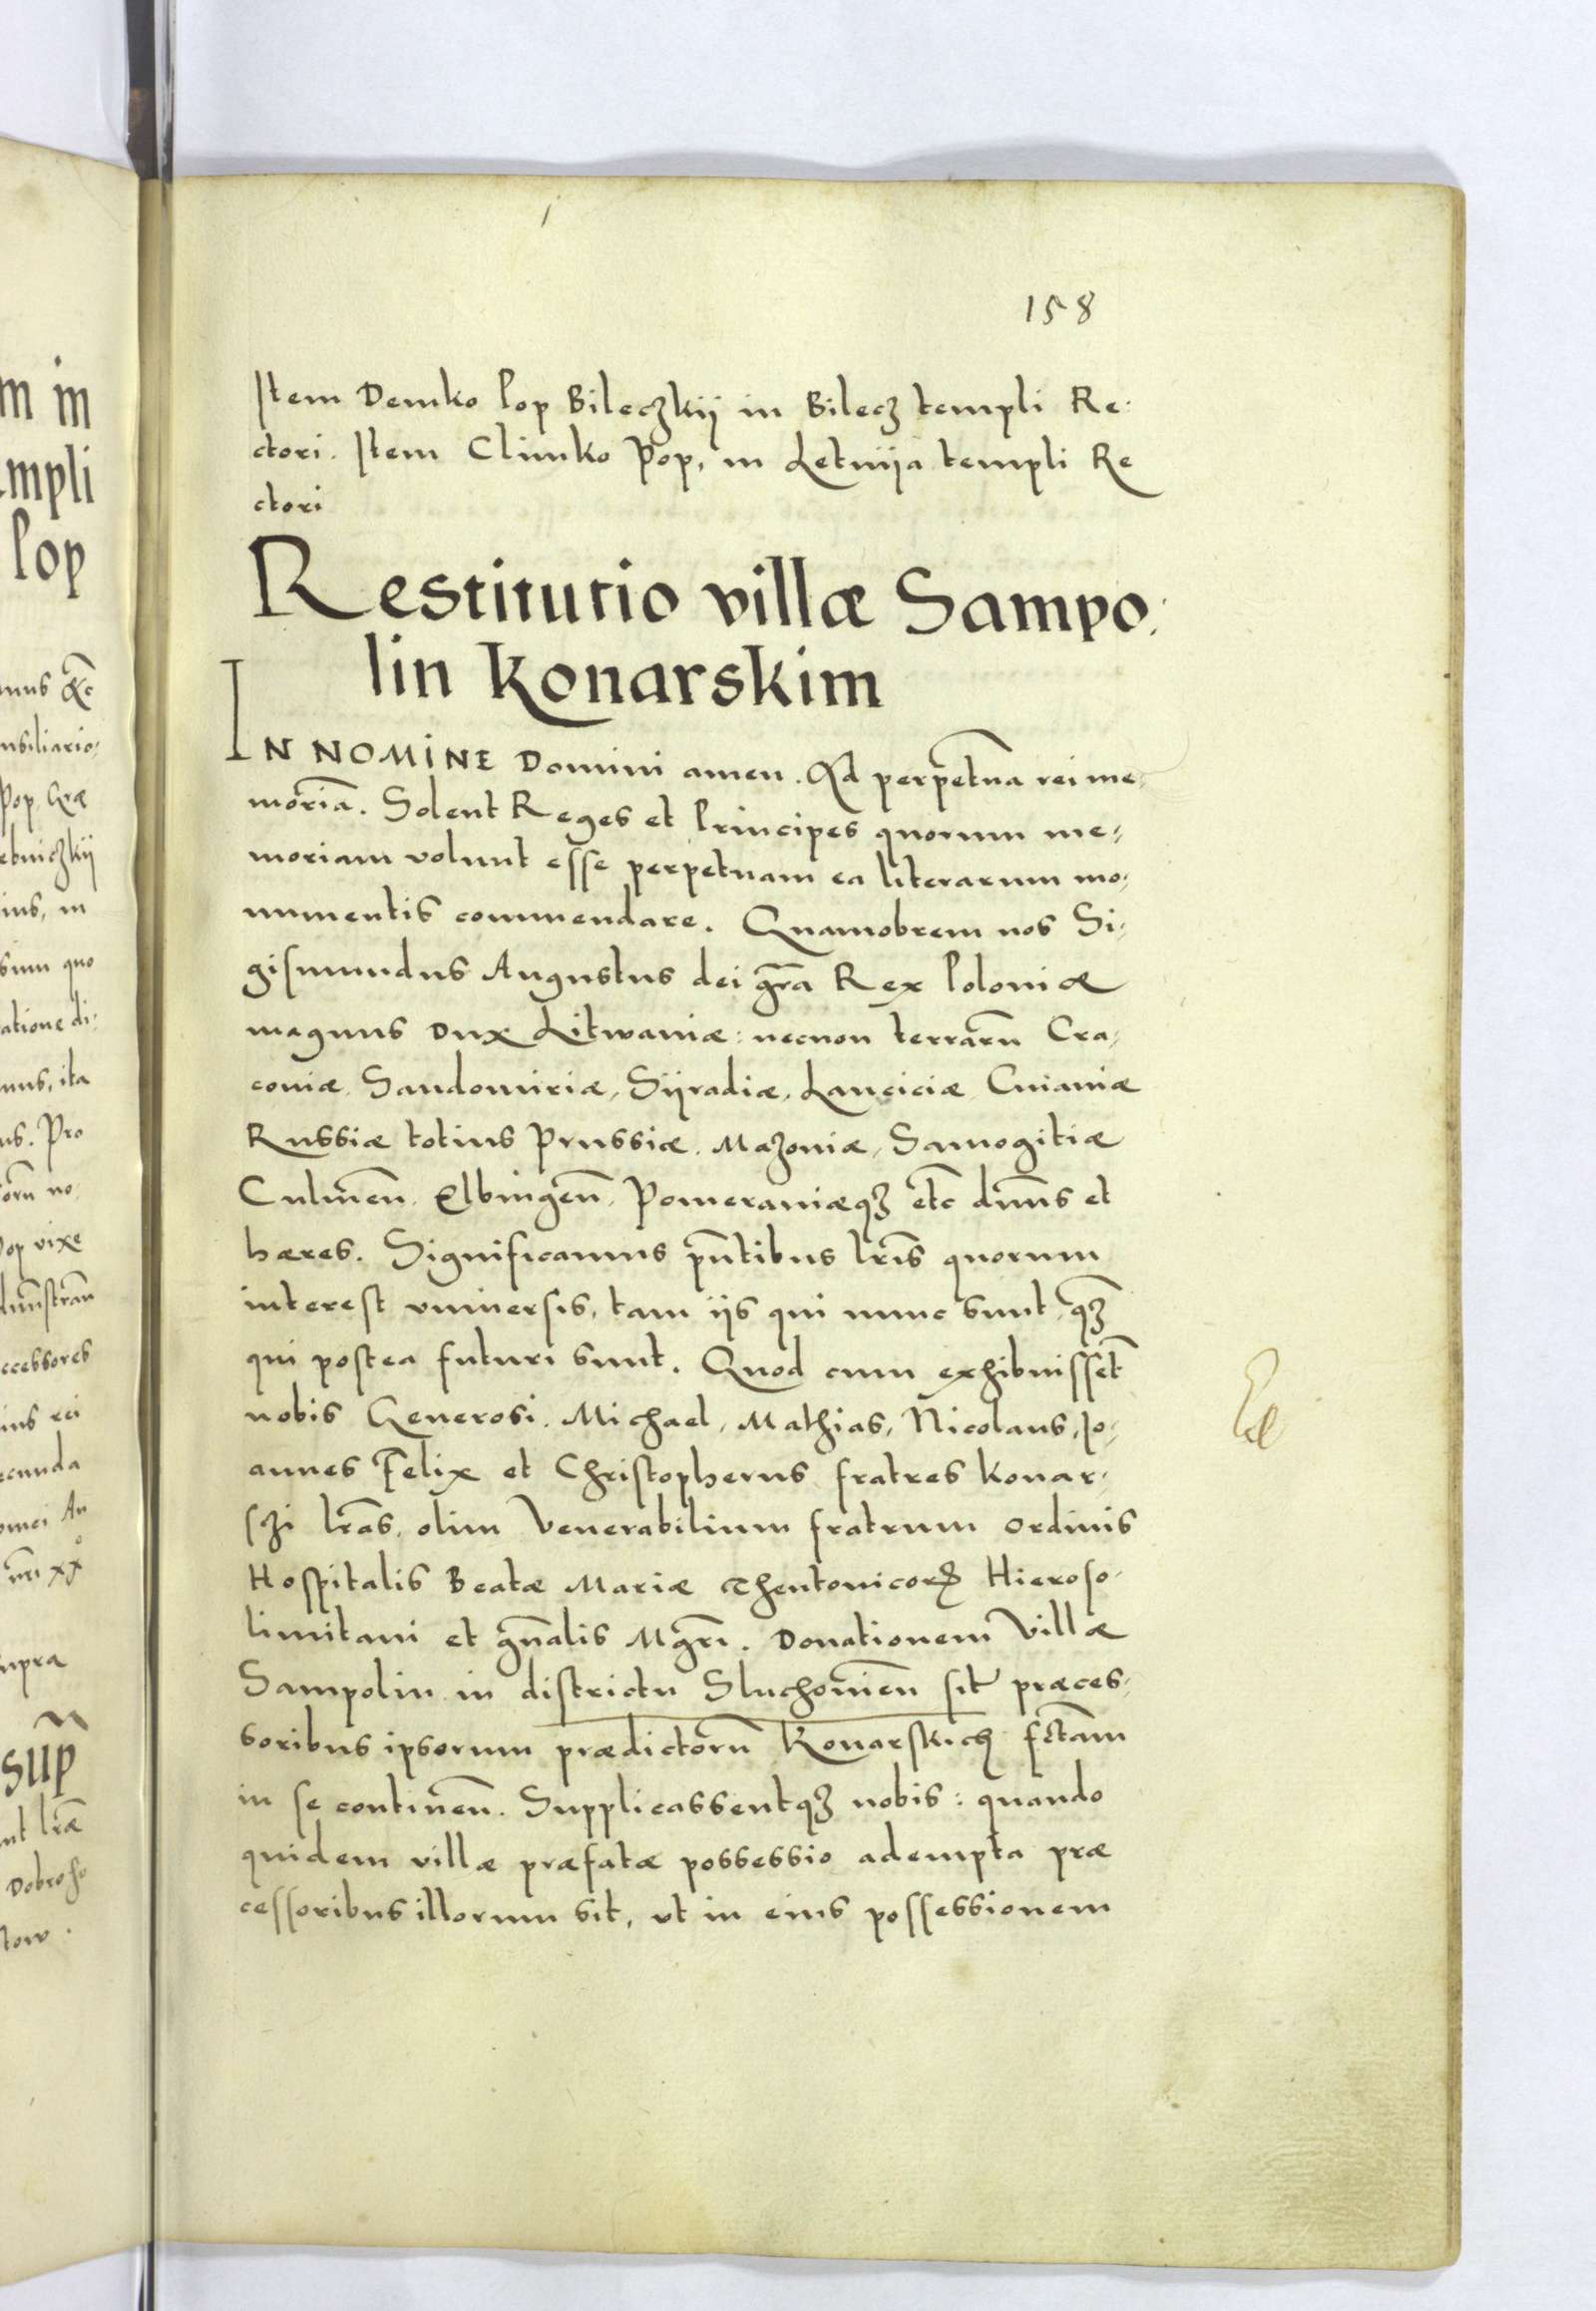 158
Item Demko Pop Bileczkij in Bilecz templi Re:
ctori. Item Climko Pop, in Letnija templi Re
ctori
Restitutio villæ Sampo:
lin Konarskim
IN NOMINE Domini amen. Ad perpetua rei me,
moria͞. Solent Reges et Principes quorum me,
moriam volunt esse perpetuam ea literarum mo,
numentis commendare. Quamobrem nos Si,
gismundus Augustus dei gr͞a Rex Poloniæ
magnus Dux Litwaniæ: necnon terraru͞ Cra,
coviæ. Sandomiriæ, Sijradiæ, Lanciciæ Cuiaviæ
Russiæ totius Prussiæ. Mazoviæ, Samogitiæ
Culmen͞. Elbingen͞. Pomeraniæqꝫ et͞c dn͞us et
hæres. Significamus pn͞tibus lr͞is quorum
interest vniversis, tam ijs qui nunc sunt, qꝫ͞
qui postea futuri sunt. Quod cum exhibuisset͞
nobis Generosi. Michael, Mathias, Nicolaus, Jo,
annes Felix et Christopherus fratres Konar,
szi lr͞as, olim Venerabilium fratrum Ordinis
Hospitalis Beatæ Mariæ Theutonicorꝝ Hieroso,
limitani et gn͞alis Mgr͞i. Donationem Villæ
Sampolin in districtu Sluchovien͞ sit͞ præces,
soribus ipsorum prædictoru͞ Konarskich fct͞am
in se continen͞. Supplicassentqꝫ nobis: quando
quidem villæ præfatæ possessio adempta præ
cessoribus illorum sit, vt in eius possessionem
m in
mpli
Pop
Pop
vixe
ccessores
supra
sup͞
lr͞æ
Dobroso